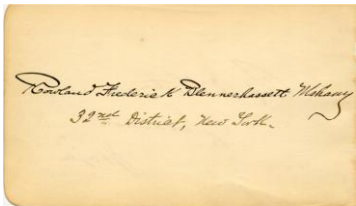 Rowland Frederick Blennerhassett Mahany
32nd District, New York.